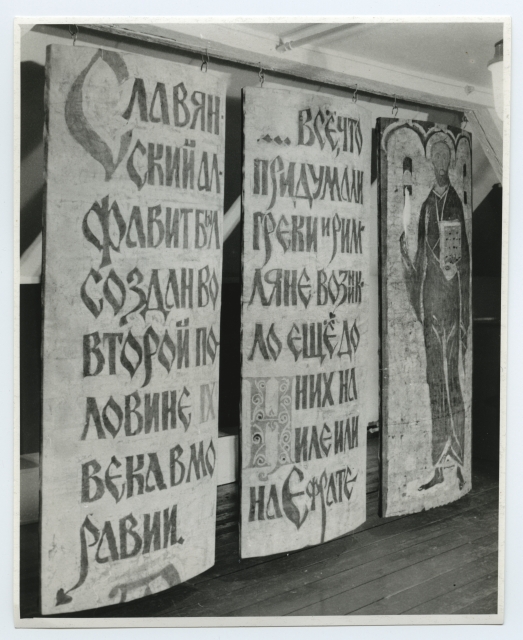 Славян-
ский ал-
фавит был
создан во
второй по-
ловине IX
века в Мо
равии.
.... всё, что
придумали
греки и рим-
ляне возник-
ло ещё до
них на
Ниле или
на Ефрате